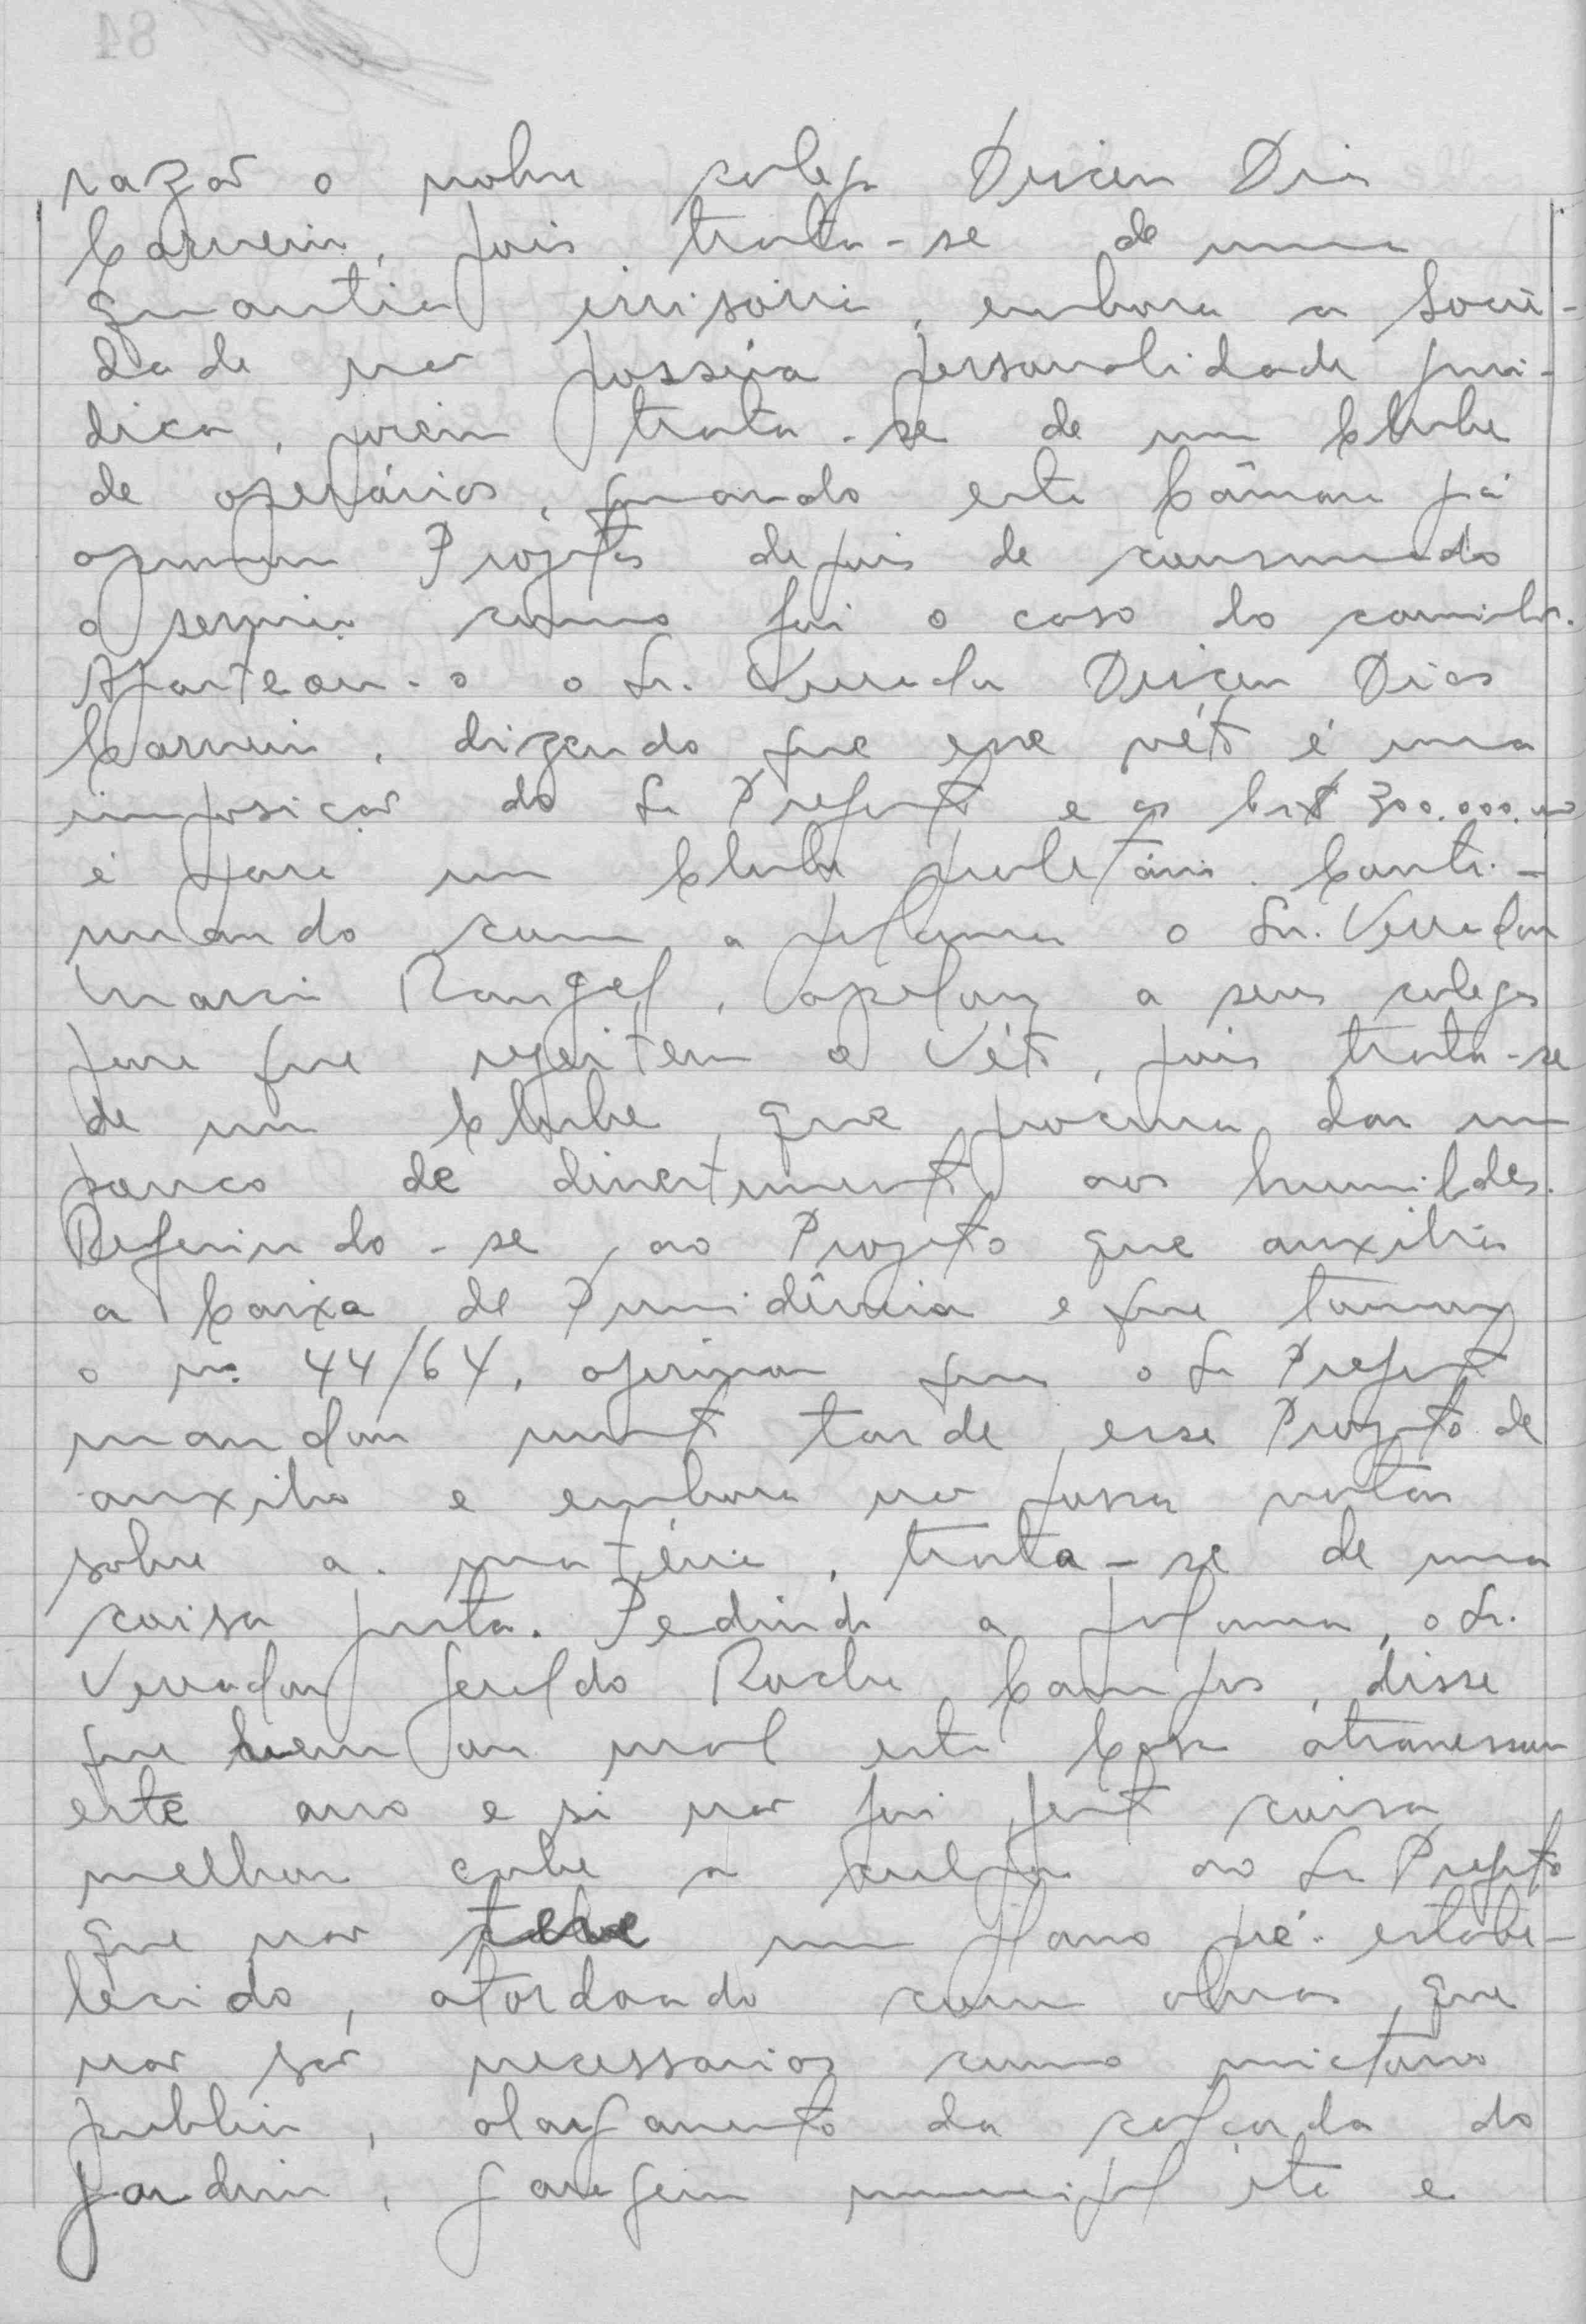 razão o nobre colega Dirceu Dias
Carneiro, pois trata-se de uma
quantia irrisória, embora a Socie-
dade não possúa personalidade juri-
dica, porém trata-se de um Clube
de operários, quando esta Câmara já
aprovou Projetos depois de consumado
o serviço como foi o caso do caminhão.
Aparteou-o o Sr. Vereador Dirceu Dias
Carneiro, dizendo que esse véto é uma
imposição do Sr Prefeito e os Cr$ 300.000,00
é para um Clube proletário. Conti-
nuando com a palavra o Sr. Vereador
Moacir Rangel, apelou a seus colegas
para que rejeitem o Véto, pois trata-se
de um Clube, que procura dar um
pouco de divertimento aos humildes.
Referindo-se ao Projeto que auxilia
a Caixa de Previdência e que tomou
o nº 44/64, afirmou que o Sr Prefeito
mandou muito tarde esse Projeto de
auxilio e embora não possa votar
sobre a matéria, trata-se de uma
coisa justa. Pedindo a palavra, o Sr.
Vereador Geraldo Rocha Campos, disse
que bem ou mal esta Casa atravessou
este ano e si não foi feito coisa
melhor cabe a culpa ao Sr Prefeito
que não teve um plano pré-estabe-
lecido, atordoando com obras que
não são necessarias como mictorio
publico, alargamento da calçada do
Jardim, garagem municipal etc e